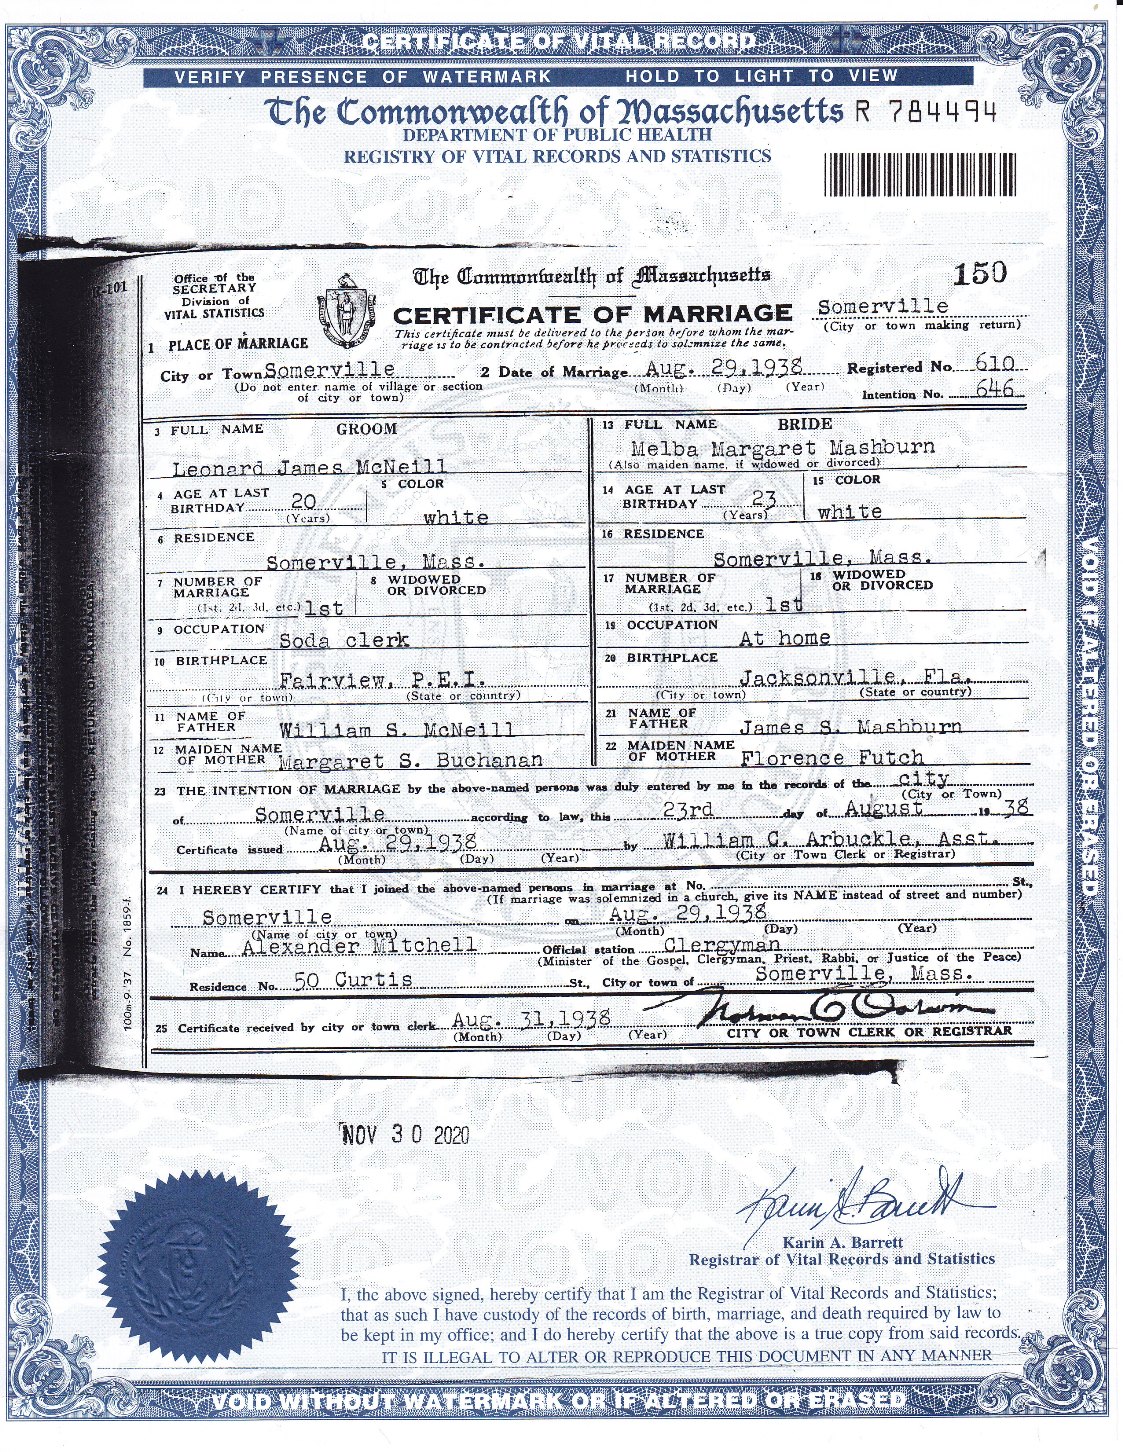 CERTIFICATE OF VITAL RECORD
VERIFY PRESENCE OF WATERMARK HOLD TO LIGHT TO VIEW
The Commonwealth of Massachusetts R 784494
DEPARTMENT OF PUBLIC HEALTH
REGISTRY OF VITAL RECORDS AND STATISTICS
R-101
Office of the
SECRETARY
Division of
VITAL STATISTICS
The Commonwealth of Massachusetts
150
CERTIFICATE OF MARRIAGE
Somerville
(City or town making return)
This certificate must be delivered to the person before whom the mar-
riage is to be contracted before he proceeds to solemnize the same.
1 PLACE OF MARRIAGE
City or Town Somerville 2 Date of Marriage Aug. 29,1938 Registered No. 610
(Do not enter name of village or section (Month) (Day) (Year)
of city or town) Intention No. 646
3 FULL NAME GROOM
Leonard James McNeill
4 AGE AT LAST
BIRTHDAY 20
(Years)
5 COLOR
white
6 RESIDENCE
Somerville, Mass.
7 NUMBER OF
MARRIAGE
(1st, 2d, 3d, etc.) 1st
8 WIDOWED
OR DIVORCED
9 OCCUPATION
Soda clerk
10 BIRTHPLACE
Fairview, P.E.I.
(City or town) (State or country)
11 NAME OF
FATHER William S. McNeill
12 MAIDEN NAME
OF MOTHER Margaret S. Buchanan
13 FULL NAME BRIDE
Melba Margaret Mashburn
(Also maiden name, if widowed or divorced)
14 AGE AT LAST
BIRTHDAY 23
(Years)
15 COLOR
white
16 RESIDENCE
Somerville, Mass.
17 NUMBER OF
MARRIAGE
(1st, 2d, 3d, etc.) 1st
18 WIDOWED
OR DIVORCED
19 OCCUPATION
At home
20 BIRTHPLACE
Jacksonville, Fla.
(City or town) (State or country)
21 NAME OF
FATHER James S. Mashburn
22 MAIDEN NAME
OF MOTHER Florence Futch
23 THE INTENTION OF MARRIAGE by the above-named persons was duly entered by me in the records of the city
(City or Town)
of Somerville according to law, this 23rd day of August 19 38
(Name of city or town)
Certificate issued Aug. 29,1938 by William C. Arbuckle, Asst.
(Month) (Day) (Year) (City or Town Clerk or Registrar)
24 I HEREBY CERTIFY that I joined the above-named persons in marriage at No. St.,
(If marriage was solemnized in a church, give its NAME instead of street and number)
Somerville on Aug. 29,1938
(Name of city or town) (Month) (Day) (Year)
Name Alexander Mitchell Official station Clergyman
(Minister of the Gospel, Clergyman, Priest, Rabbi, or Justice of the Peace)
Residence No. 50 Curtis St., City or town of Somerville, Mass.
25 Certificate received by city or town clerk Aug. 31,1938
(Month) (Day) (Year)
CITY OR TOWN CLERK OR REGISTRAR
100m-9-'37 No. 1859-f.
NOV 30 2020
Karin A. Barrett
Karin A. Barrett
Registrar of Vital Records and Statistics
I, the above signed, hereby certify that I am the Registrar of Vital Records and Statistics;
that as such I have custody of the records of birth, marriage, and death required by law to
be kept in my office; and I do hereby certify that the above is a true copy from said records.
IT IS ILLEGAL TO ALTER OR REPRODUCE THIS DOCUMENT IN ANY MANNER
VOID WITHOUT WATERMARK OR IF ALTERED OR ERASED
VOID IF ALTERED OR ERASED